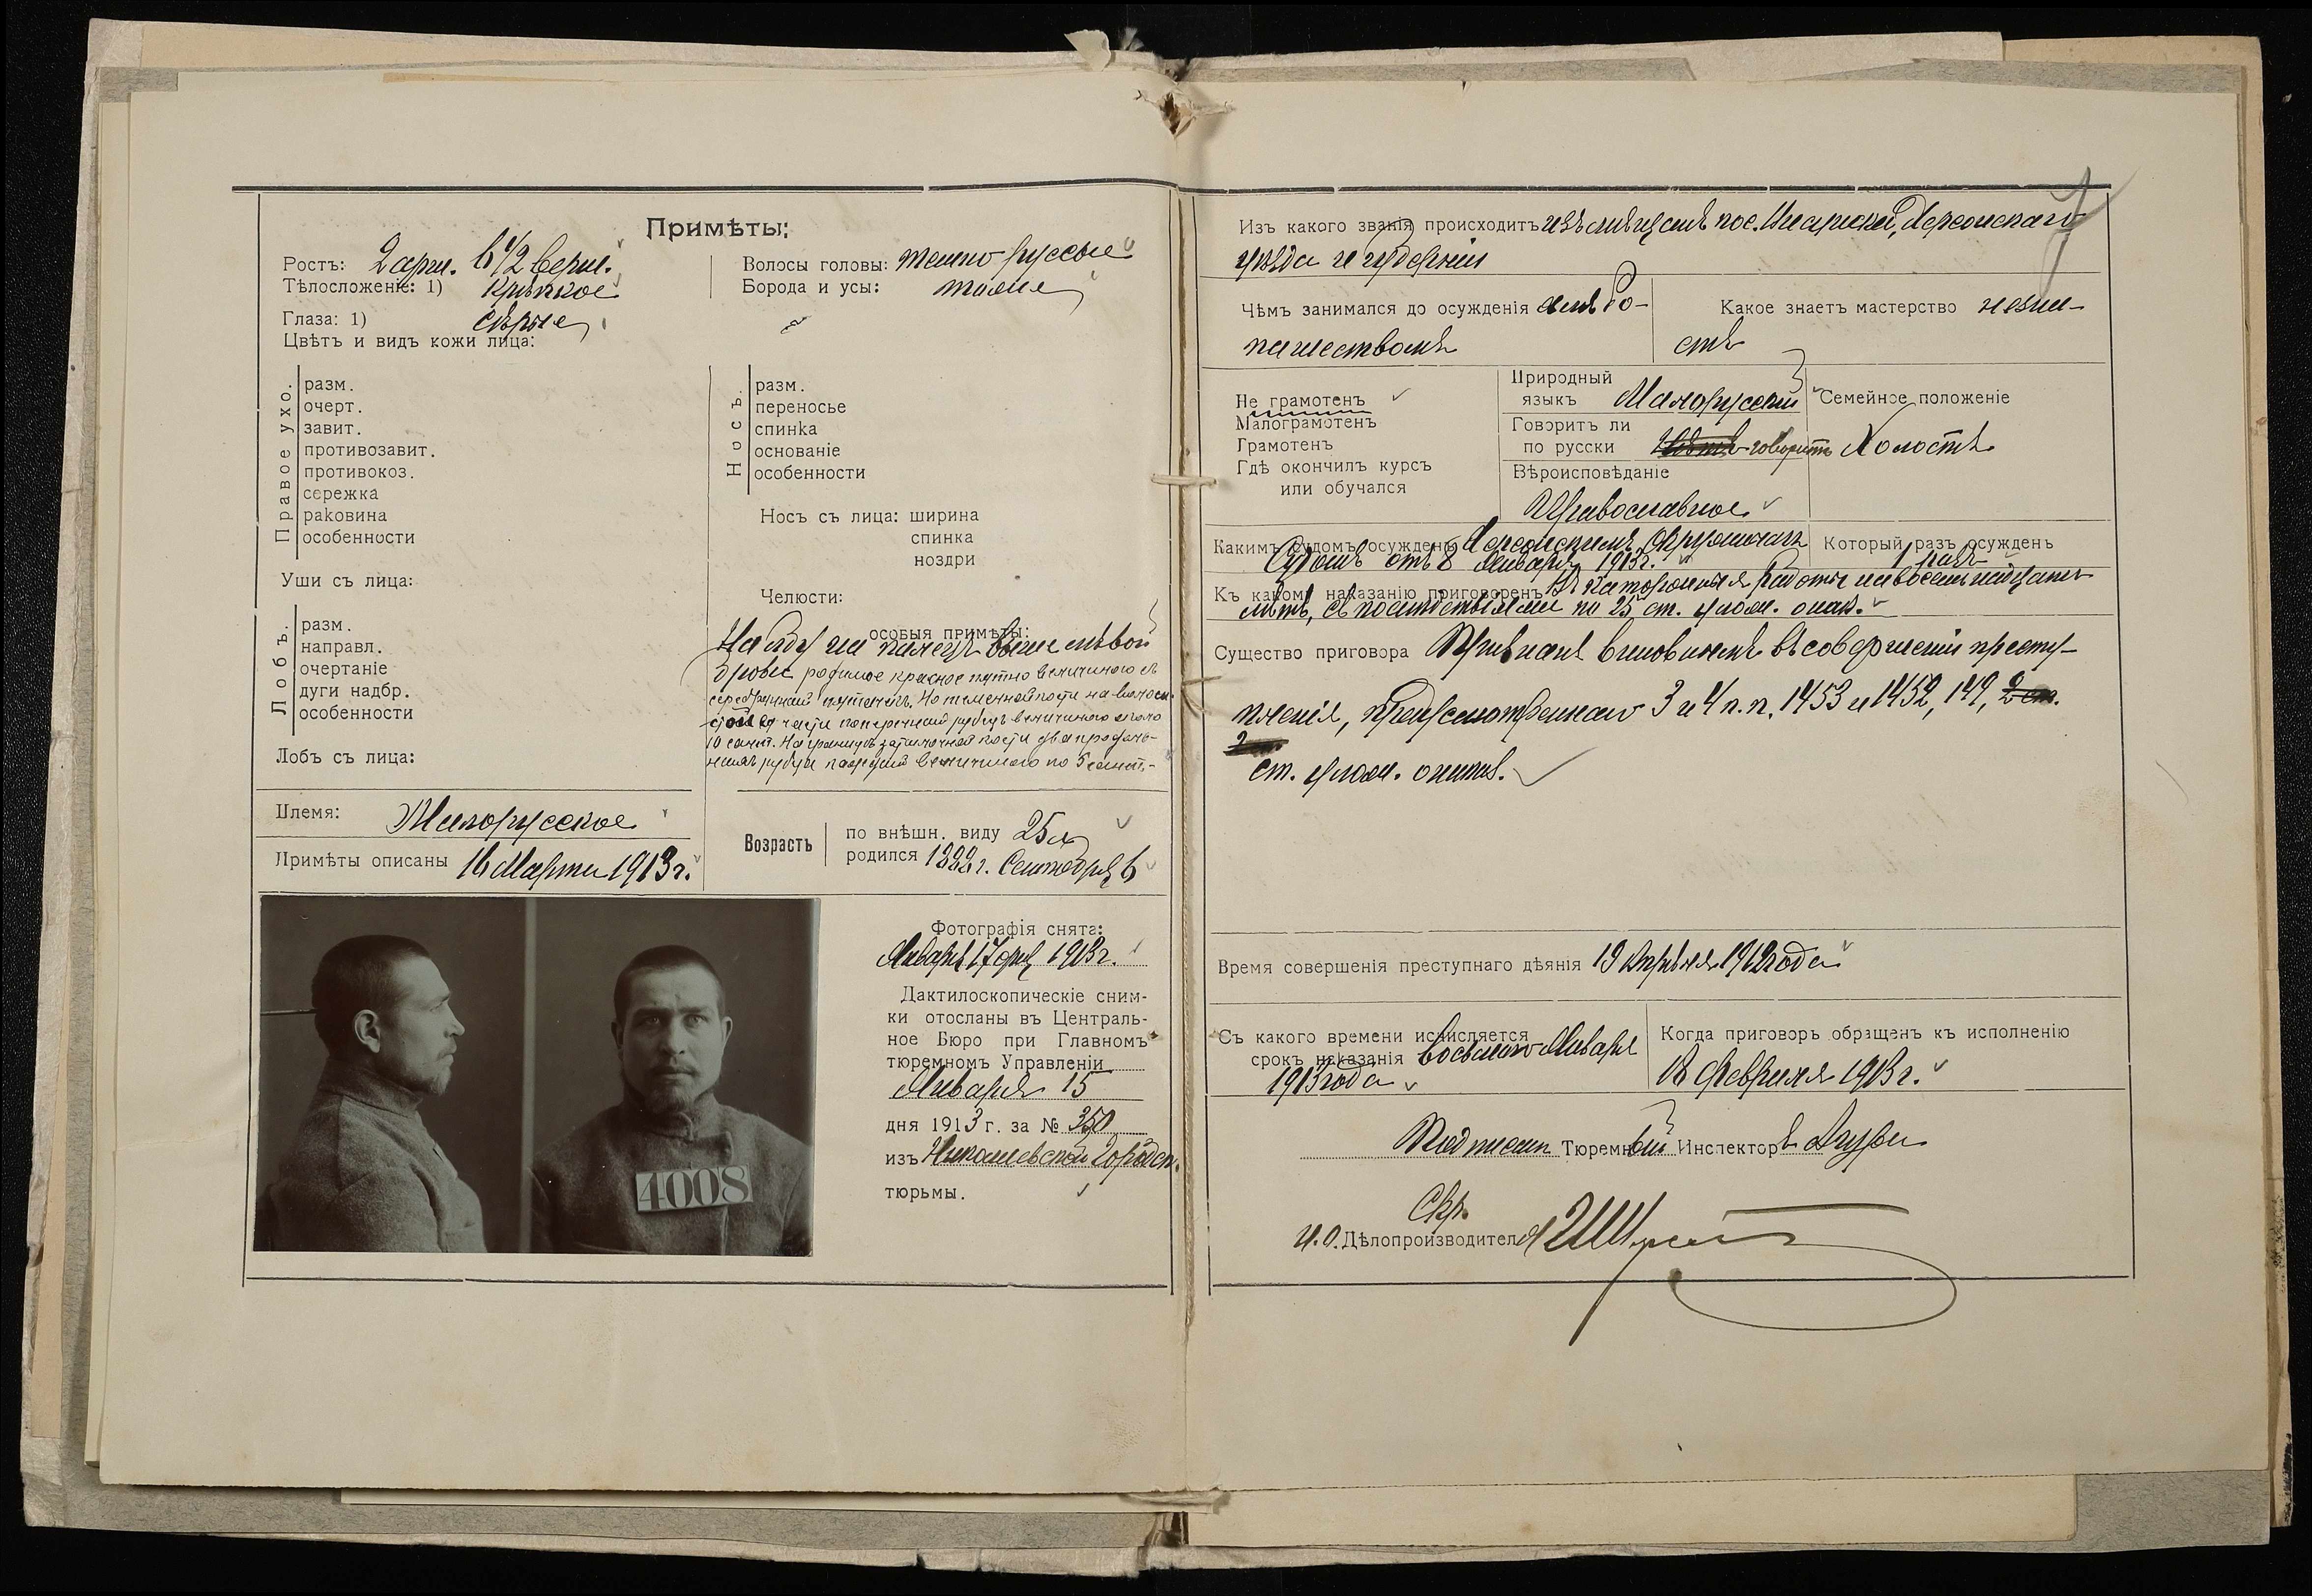 Примѣты:
Ростъ: 2 арш. 6 1/2 верш.
Тѣлосложеніе: 1) крѣпкое
Глаза: 1) сѣрые
Цвѣтъ и видъ кожи лица:
Волосы головы: темно русые
Борода и усы: тоже
Правое ухо.
разм.
очерт.
завит.
противозавит.
противокоз.
сережка
раковина
особенности
Уши съ лица:
Лобъ.
разм.
направл.
очертаніе
дуги надбр.
особенности
Лобъ съ лица:
Носъ.
разм.
переносье
спинка
основаніе
особенности
Носъ съ лица: ширина
спинка
ноздри
Челюсти:
особыя примѣты:
На лбу на палецъ выше лѣвой
брови родимое красное пятно величиною въ
серебрянный пятачекъ. На теменной кости на волоси-
стой части поперечный рубецъ величиною около
10 сант. На границѣ затылочной кости два продоль-
ныхъ рубца каждый величиною по 5 сант.
Племя: Малорусское
Примѣты описаны 16 Марта 1913 г.
Возрастъ
по внѣшн. виду 25 л.
родился 1888 г. Сентября 6
Фотографія снята:
Января 17 дня 1913 г.
Дактилоскопическіе сним-
ки отосланы въ Централь-
ное Бюро при Главномъ
тюремномъ Управленіи
Января 15
дня 1913 г. за № 350
изъ Николаевской Городск.
тюрьмы.
4008
Изъ какого званія происходитъ изъ мѣщанъ пос. Херсонскаго
уѣзда и губерніи
Чѣмъ занимался до осужденія хлѣбо-
пашествомъ
Какое знаетъ мастерство незна-
етъ
Не грамотенъ
Малограмотенъ
Грамотенъ
Гдѣ окончилъ курсъ
или обучался
Природный
языкъ Малорусскій
Говоритъ ли
по русски говоритъ
Вѣроисповѣданіе
Православное
Семейное положеніе
Холостъ
Какимъ судомъ осужденъ Херсонскимъ Окружнымъ
Судомъ отъ 8 Января 1913 г.
Который разъ осужденъ
1 разъ
Къ какому наказанію приговоренъ Въ каторжныя работы на восемнадцать
лѣтъ, съ послѣдствіями по 25 ст. улож. о нак.
Существо приговора Признанъ виновнымъ въ совершеніи престу-
пленія, предусмотреннаго 3 и 4 п.п. 1453 и 1452, 149,
ст. улож. о наказ.
Время совершенія преступнаго дѣянія 19 Апрѣля 1912 года
Съ какого времени исчисляется
срокъ наказанія восьмого Января
1913 года
Когда приговоръ обращенъ къ исполненію
18 Февраля 1913 г.
Подписалъ Тюремный Инспекторъ
Скр.
И. О. Дѣлопроизводителя